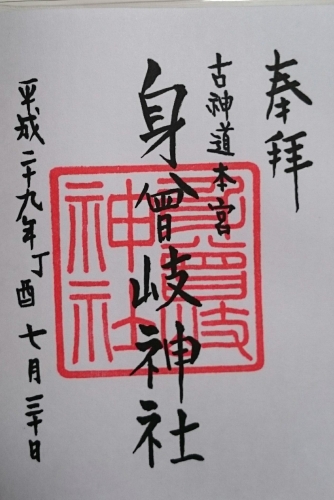 奉拝
古神道本宮
身曾岐神社
平成二十九年丁酉七月三十日
身曾岐
神社